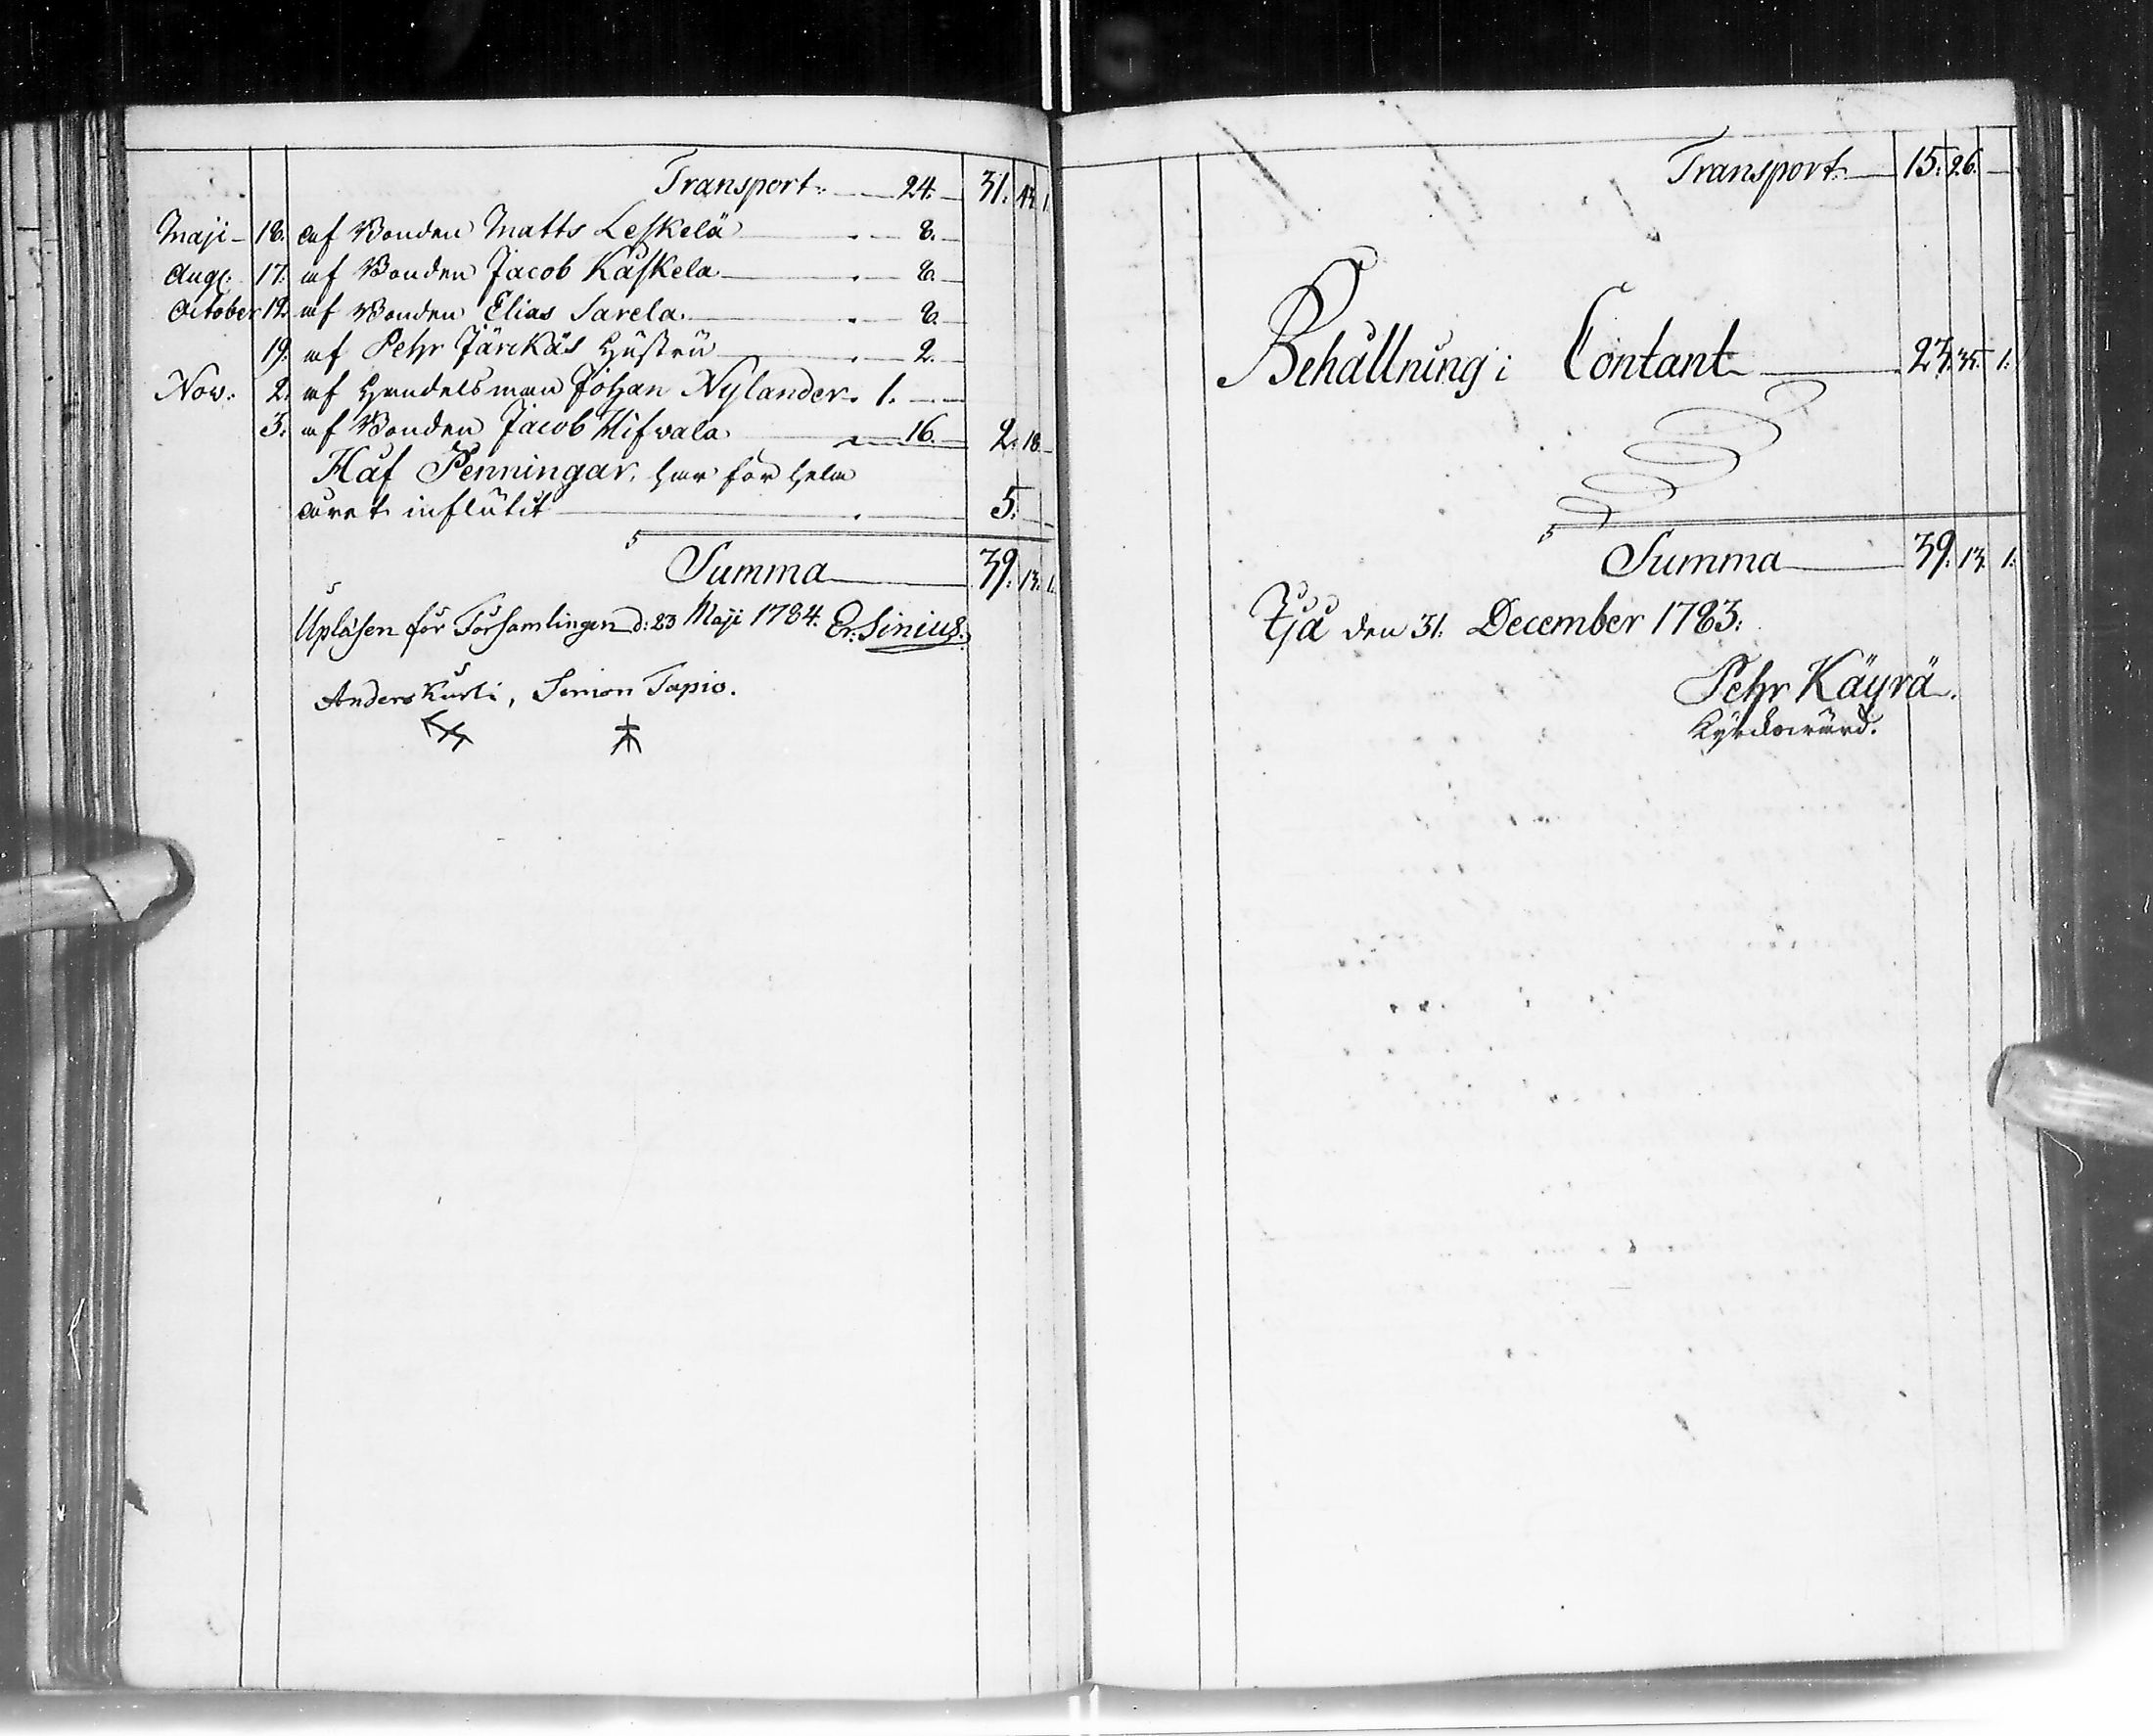 Transport. 24. 31. 43. 1.
Maji 18. af Bonden Matts Leskelä 8.
Aug: 17. af Bonden Jacob Kaskela 8.
October 12. af Bonden Elias Sarela. 8.
19. af Pehr Järckäs Hustru 2.
Nov. 2. af Handelsman Johan Nylander. 1.
3. af Bonden Jacob Hifvala 16. 2. 18.
Håf Penningar, har för hela
året influtit 5.
Summa 39. 13. 1.
Upläsen för Församlingen d: 23 Maji 1784. Er. Sinius.
Anders Kurti, Simon Tapio.
Transport 15. 26.
Behållning i Contant 23. 35. 1.
Summa 39. 13. 1.
Ijå den 31. December 1783.
Pehr Käyrä.
Kyrckovärd.